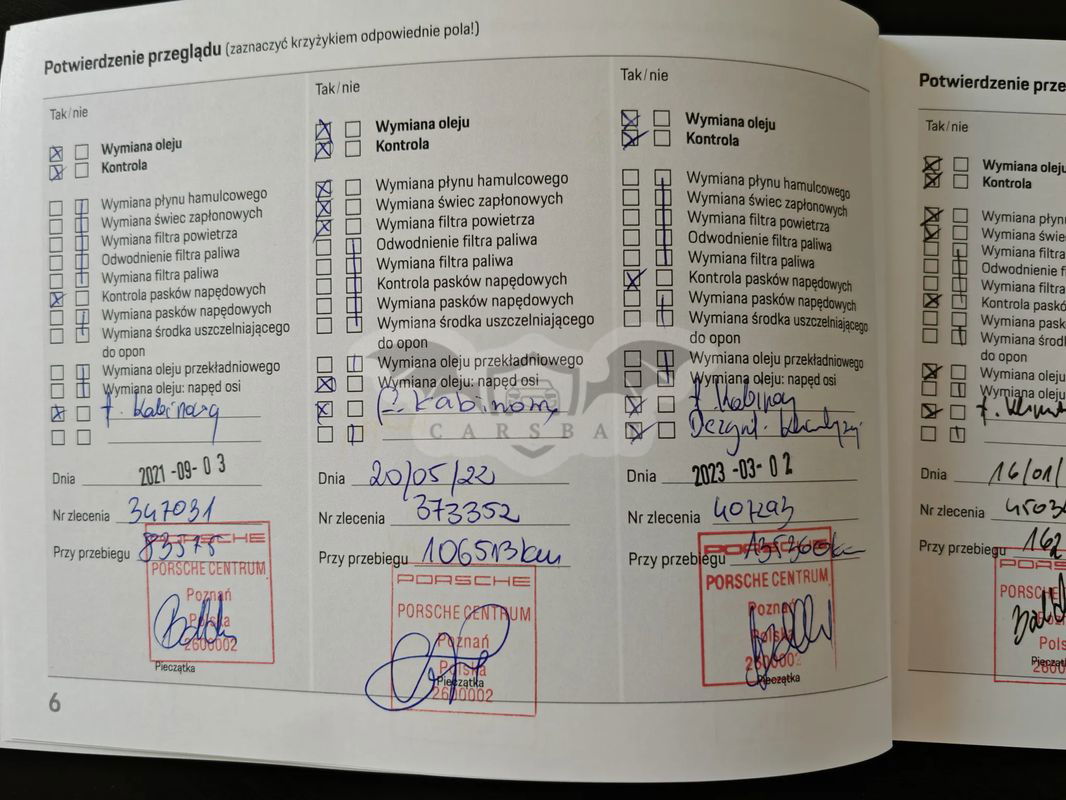 Potwierdzenie przeglądu (zaznaczyć krzyżykiem odpowiednie pola!)
Tak/nie
Wymiana oleju
Kontrola
Wymiana płynu hamulcowego
Wymiana świec zapłonowych
Wymiana filtra powietrza
Odwodnienie filtra paliwa
Wymiana filtra paliwa
Kontrola pasków napędowych
Wymiana pasków napędowych
Wymiana środka uszczelniającego
do opon
Wymiana oleju przekładniowego
Wymiana oleju: napęd osi
f. Kabinowy
Dnia 2021-09-03
Nr zlecenia 347031
Przy przebiegu 83575
PORSCHE
PORSCHE CENTRUM
Poznań
Polska
2600002
Pieczątka
6
Tak/nie
Wymiana oleju
Kontrola
Wymiana płynu hamulcowego
Wymiana świec zapłonowych
Wymiana filtra powietrza
Odwodnienie filtra paliwa
Wymiana filtra paliwa
Kontrola pasków napędowych
Wymiana pasków napędowych
Wymiana środka uszczelniającego
do opon
Wymiana oleju przekładniowego
Wymiana oleju: napęd osi
f. Kabinowy
CARSBA
Dnia 20/05/22
Nr zlecenia 373352
Przy przebiegu 106513km
PORSCHE
PORSCHE CENTRUM
Poznań
Polska
Pieczątka
2600002
Tak/nie
Wymiana oleju
Kontrola
Wymiana płynu hamulcowego
Wymiana świec zapłonowych
Wymiana filtra powietrza
Odwodnienie filtra paliwa
Wymiana filtra paliwa
Kontrola pasków napędowych
Wymiana pasków napędowych
Wymiana środka uszczelniającego
do opon
Wymiana oleju przekładniowego
Wymiana oleju: napęd osi
f. Kabinowy
Dnia 2023-03-02
Nr zlecenia 407293
Przy przebiegu 135260km
PORSCHE
PORSCHE CENTRUM
Poznań
Polska
2600002
Pieczątka
Potwierdzenie prze
Tak/nie
Wymiana oleju
Kontrola
Wymiana płyn
Wymiana świe
Wymiana filtra
Odwodnienie f
Wymiana filtra
Kontrola pask
Wymiana pas
Wymiana środ
do opon
Wymiana oleju
Wymiana oleju
Dnia 16/01/
Nr zlecenia 4503
Przy przebiegu 162
PORSCHE
Pols
Pieczątk
2600